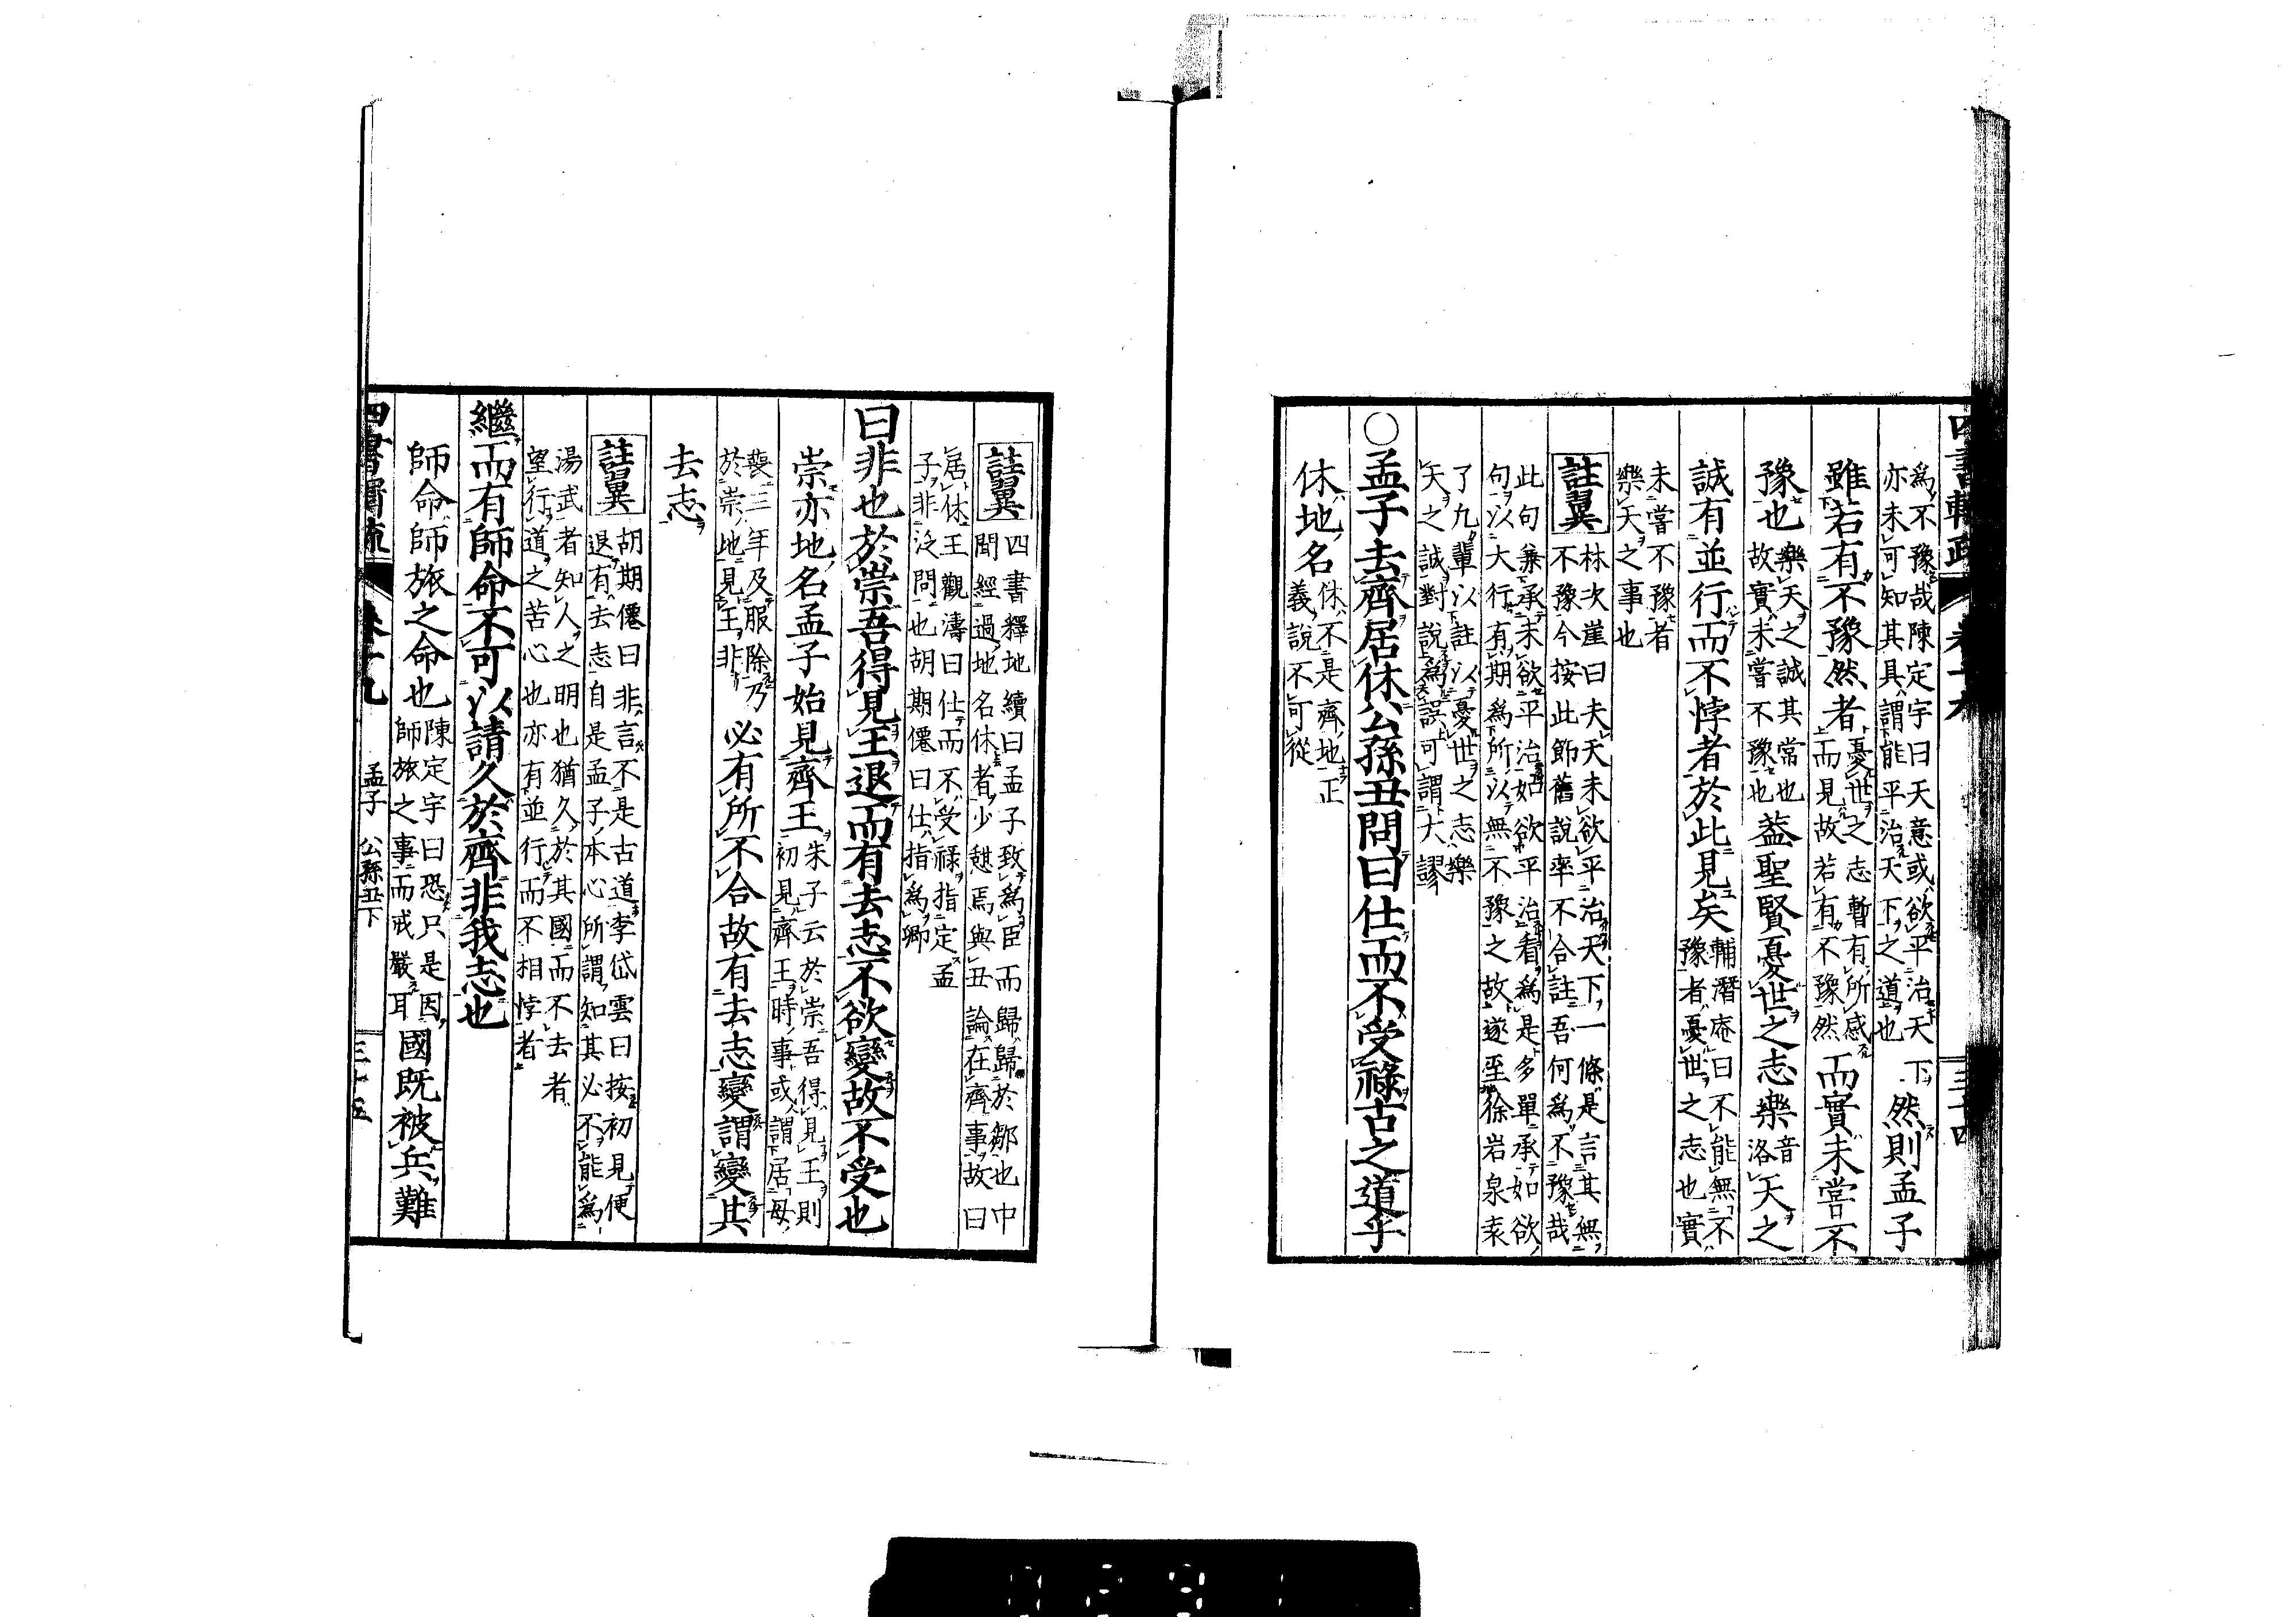 四書輯疏 卷十九 三十四
爲不豫哉陳定宇曰天意或欲平治天下
亦未可知其具謂能平治天下之道也
然則孟子
雖若有不豫然者
憂世之志暫有所感
而見故若有不豫然
而實未嘗不
豫也
樂天之誠其常也
故實未嘗不豫也
蓋聖賢憂世之志樂
音
洛
天之
誠有並行而不悖者於此見矣
輔潛庵曰不能無不
豫者憂世之志也實
未嘗不豫者
樂天之事也
註翼
林次崖曰夫天未欲平治天下一條是言其無
不豫今按此節舊說率不合註吾何爲不豫哉
此句兼承未欲平治如欲平治看爲是多單承如欲
句以大行有期爲所以無不豫之故遂至徐岩泉袁
了凡輩以註以憂世之志樂
天之誠對說爲誤可謂大謬
○孟子去齊居休公孫丑問曰仕而不受祿古之道乎
休地名
休不是齊地正
義說不可從
註翼
四書釋地續曰孟子致爲臣而歸歸於鄒也中
間經過地名休者少憇焉與丑論在齊事故曰
居休王觀濤曰仕而不受祿指定孟
子非泛問也胡期僊曰仕指爲卿
曰非也於崇吾得見王退而有去志不欲變故不受也
崇亦地名孟子始見齊王
朱子云於崇吾得見王則
初見齊王時事或謂居母
喪三年及服除乃
於崇地見王非
必有所不合故有去志變謂變其
去志
註翼
胡期僊曰非言不是古道李岱雲曰按初見便
退有去志自是孟子本心所謂知其必不能爲
湯武者知人之明也猶久於其國而不去者
望行道之苦心也亦有並行而不相悖者
繼而有師命不可以請久於齊非我志也
師命師旅之命也
陳定宇曰恐只是因
師旅之事而戒嚴耳
國既被兵難
四書輯疏 卷十九 孟子 公孫丑下 三十五